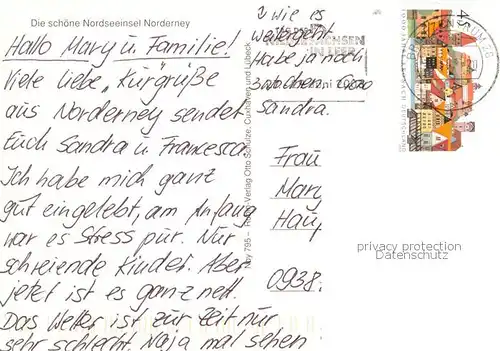 Die schöne Nordseeinsel Norderney
Hallo Mary u. Familie!
Viele liebe "Kurgrüße
aus Norderney sendet
Euch Sandra u. Francesca
Ich habe mich ganz
gut eingelebt, am Anfang
war es Stress pur. Nur
schreiende Kinder. Aber
jetzt ist es ganz nett.
Das Wetter ist zur Zeit nur
sehr schlecht. Naja mal sehen
wie es
weitergeht.
Habe ja noch
3 Wochen.
Sandra.
Frau
Mary
Hau
0938
Verlag Otto Schulze, Cuxhaven und Lübeck
privacy protection
Datenschutz